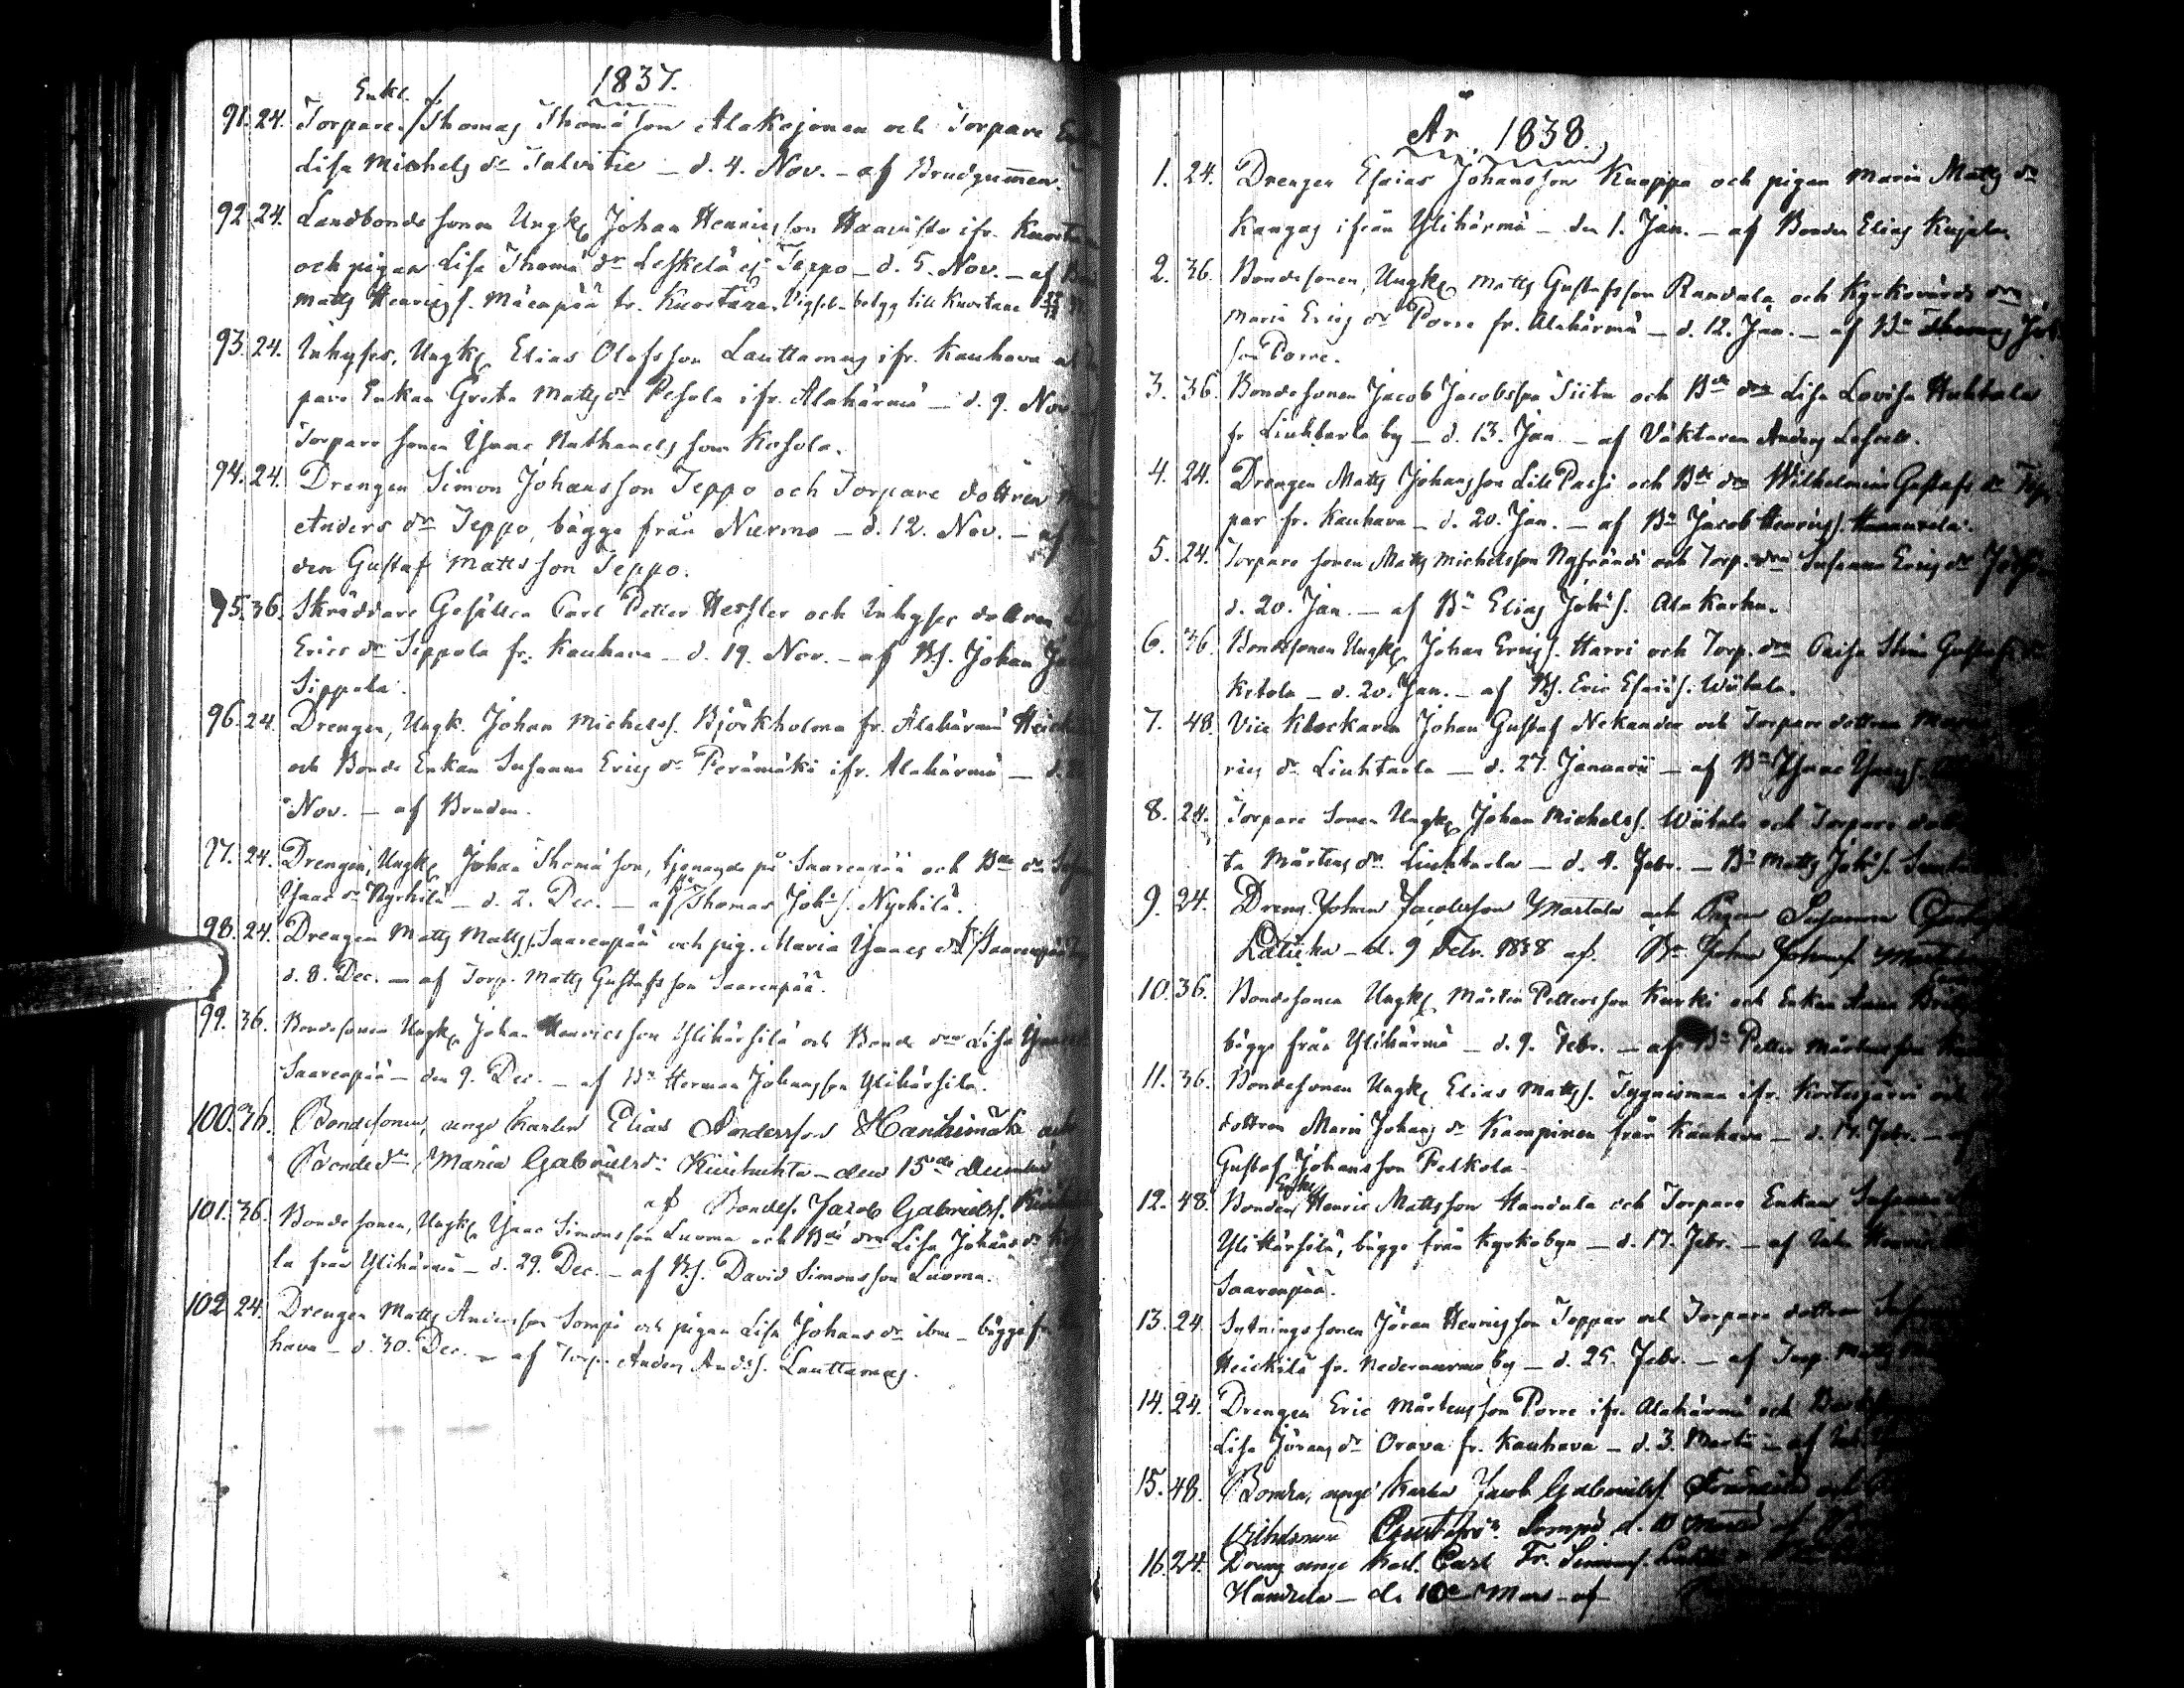 1837.
Enkl.
91. 24. Torparen Thomas Thomasson Alakojonen och Torpare
Lisa Michels dr Talvitie – d. 4. Nov. – af Brudgummen.
92. 24. Landbonde sonen Ungk. Johan Henricsson Haavisto ifr.
och pigan Lisa Thomæ dr Leskelä ifr Teppo – d. 5. Nov. – af
Matts Henrics s. Mäenpää fr. Kuortane. Vigsel-betyg till Kuortane
93. 24. Inhyses, Ungk. Elias Olofsson Lauttamus ifr. Kauhava
pare Enkan Greta Matts dr Pesola ifr. Alahärmä – d. 9. Nov.
Torpare sonen Isaac Nathanaels son Kosola.
94. 24. Drengen Simon Johansson Teppo och Torpare dottren
Anders dr Teppo, bägge från Nurmo – d. 12. Nov. – af
den Gustaf Mattsson Teppo.
95. 36. Skräddare Gesällen Carl Petter Hessler och Inhyses dottren
Erics dr Sippola fr. Kauhava – d. 19. Nov. – af Bs. Johan
Sippola.
96. 24. Drengen, Ungk. Johan Michelss. Björkholma fr. Alahärmä
och Bonde Enkan Susanna Erics dr Perämäki ifr. Alahärmä – d.
Nov. – af Bruden.
97. 24. Drengen, Ungk. Johan Thomæson, tjenande på Saarenpää och Bde dr
Isaacs dr Nyrhilä – d. 2. Dec. – af Thomas Johs s. Nyrhilä.
98. 24. Drengen Matts Mattss. Saarenpää och pig. Maria Isaacs dr Saarenpää
d. 8. Dec. – af Torp. Matts Gustafsson Saarenpää.
99. 36. Bondesonen Ungk. Johan Henricsson Ylikärsilä och Bonde drn Lisa
Saarenpää – den 9. Dec. – af Bn Herman Johansson Ylikärsilä.
100. 36. Bondesonen, unge karlen Elias Andersson Hanhimäki och
Bonde dr Maria Gabriels dr Kiviluhta – den 15de December
af Bondes. Jacob Gabrielss.
101. 36. Bonde sonen, Ungk. Isaac Simonsson Luoma och Bde drn Lisa Johans dr
la från Ylihärmä – d. 29. Dec. – af Bs. David Simonsson Luoma.
102. 24. Drengen Matts Andersson Sompi och pigan Lisa Johans dr ibm – bägge fr
hava – d. 30. Dec. – af Torp. Anders Ands s. Lauttamus.
År 1838.
1. 24. Drengen Esaias Johansson Knoppa och pigan Maria Matts dr
Kangas ifrån Ylihärmä – den 1. Jan. – af Bonden Elias Kujala.
2. 36. Bondesonen, Ungk. Matts Gustafsson Randala och Kyrkovärds drn
Maria Erics dr Porre fr. Alahärmä – d. 12. Jan. – af Bn Thomas
son Porre.
3. 36. Bondesonen Jacob Jacobsson Tiitu och Bde drn Lisa Lovisa Huhtala
fr Liuhtarla by – d. 13. Jan. – af Väktaren Anders
4. 24. Drengen Matts Johansson Lill Passi och Bde drn Wilhelmina Gustafs dr
par fr. Kauhava – d. 20. Jan. – af Bn Jacob Henricss.
5. 24. Torpare sonen Matts Michelsson Nyfrändi och Torp. drn Susanna Erics dr
d. 20. Jan. – af Bn Elias Johs s. Alakarhu.
6. 36. Bondesonen Ungk. Johan Ericss. Harri och Torp. drn Caisa Stina Gustafs dr
Ketola – d. 20. Jan. – af Bs. Eric Esaiæs. Wiitala.
7. 48. Vice Klockaren Johan Gustaf Nekander och Torpare dottren
rics dr Liuhtarla – d. 27. Januarii – af Bn Isaac
8. 24. Torpare sonen Ungk. Johan Michelss. Wiitala och Torpare
ta Mårtens dr Liuhtarla – d. 4. Febr. – Bn Matts Johs s.
9. 24. Dreng. Johan Jacobsson Martala och Pigan Susanna
Latikka – d. 9 Febr. 1838 af. Bn Johan Johans s.
10. 36. Bondesonen Ungk. Mårten Pettersson Kurki och Enkan Anna
bägge från Ylihärmä – d. 9. Febr. – af Bn Petter Mårtensson
11. 36. Bondesonen Ungk. Elias Mattss. Tyynismaa ifr. Kortesjärvi och
dottren Maria Johans dr Kampinen från Kauhava – d. 17. Febr. –
Gustaf Johansson Pelkola.
12. 48. Bonden, Enkl. Henric Mattsson Handula och Torpare Enkan Susanna
Ylikärsilä, bägge från Kyrkobyn – d. 17. Febr. – af
Saarenpää.
13. 24. Sytnings sonen Jöran Henricsson Toppar och Torpare dottren
Heickilä fr. Nedernurmo by – d. 25. Febr. – af Torp. Matts
14. 24. Drengen Eric Mårtensson Porre ifr. Alahärmä och
Lisa Jörans dr Orava fr. Kauhava – d. 3. Martii – af
15. 48. Bonden, unge karlen Jacob Gabrielss.
Vilhelmina Gustafsdr. Sompi d. 10 af
16. 24. Dreng unge karl. Carl Fr. Simonss.
Handela – d. 10e Mars – af